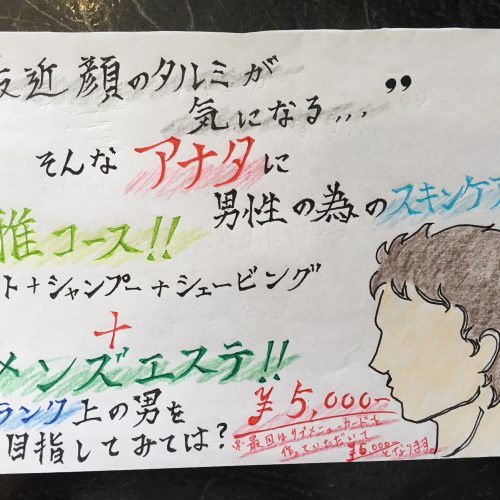 近顔のタルミが
気になる...”
そんなアナタに
男性の為のスキンケア
雅コース!!
ト+シャンプー+シェービング
+
メンズエステ!!
ランク上の男を
目指してみては?
¥5,000-
※最回はサブメニューカードを
作っていただいて
¥6,000-となります。